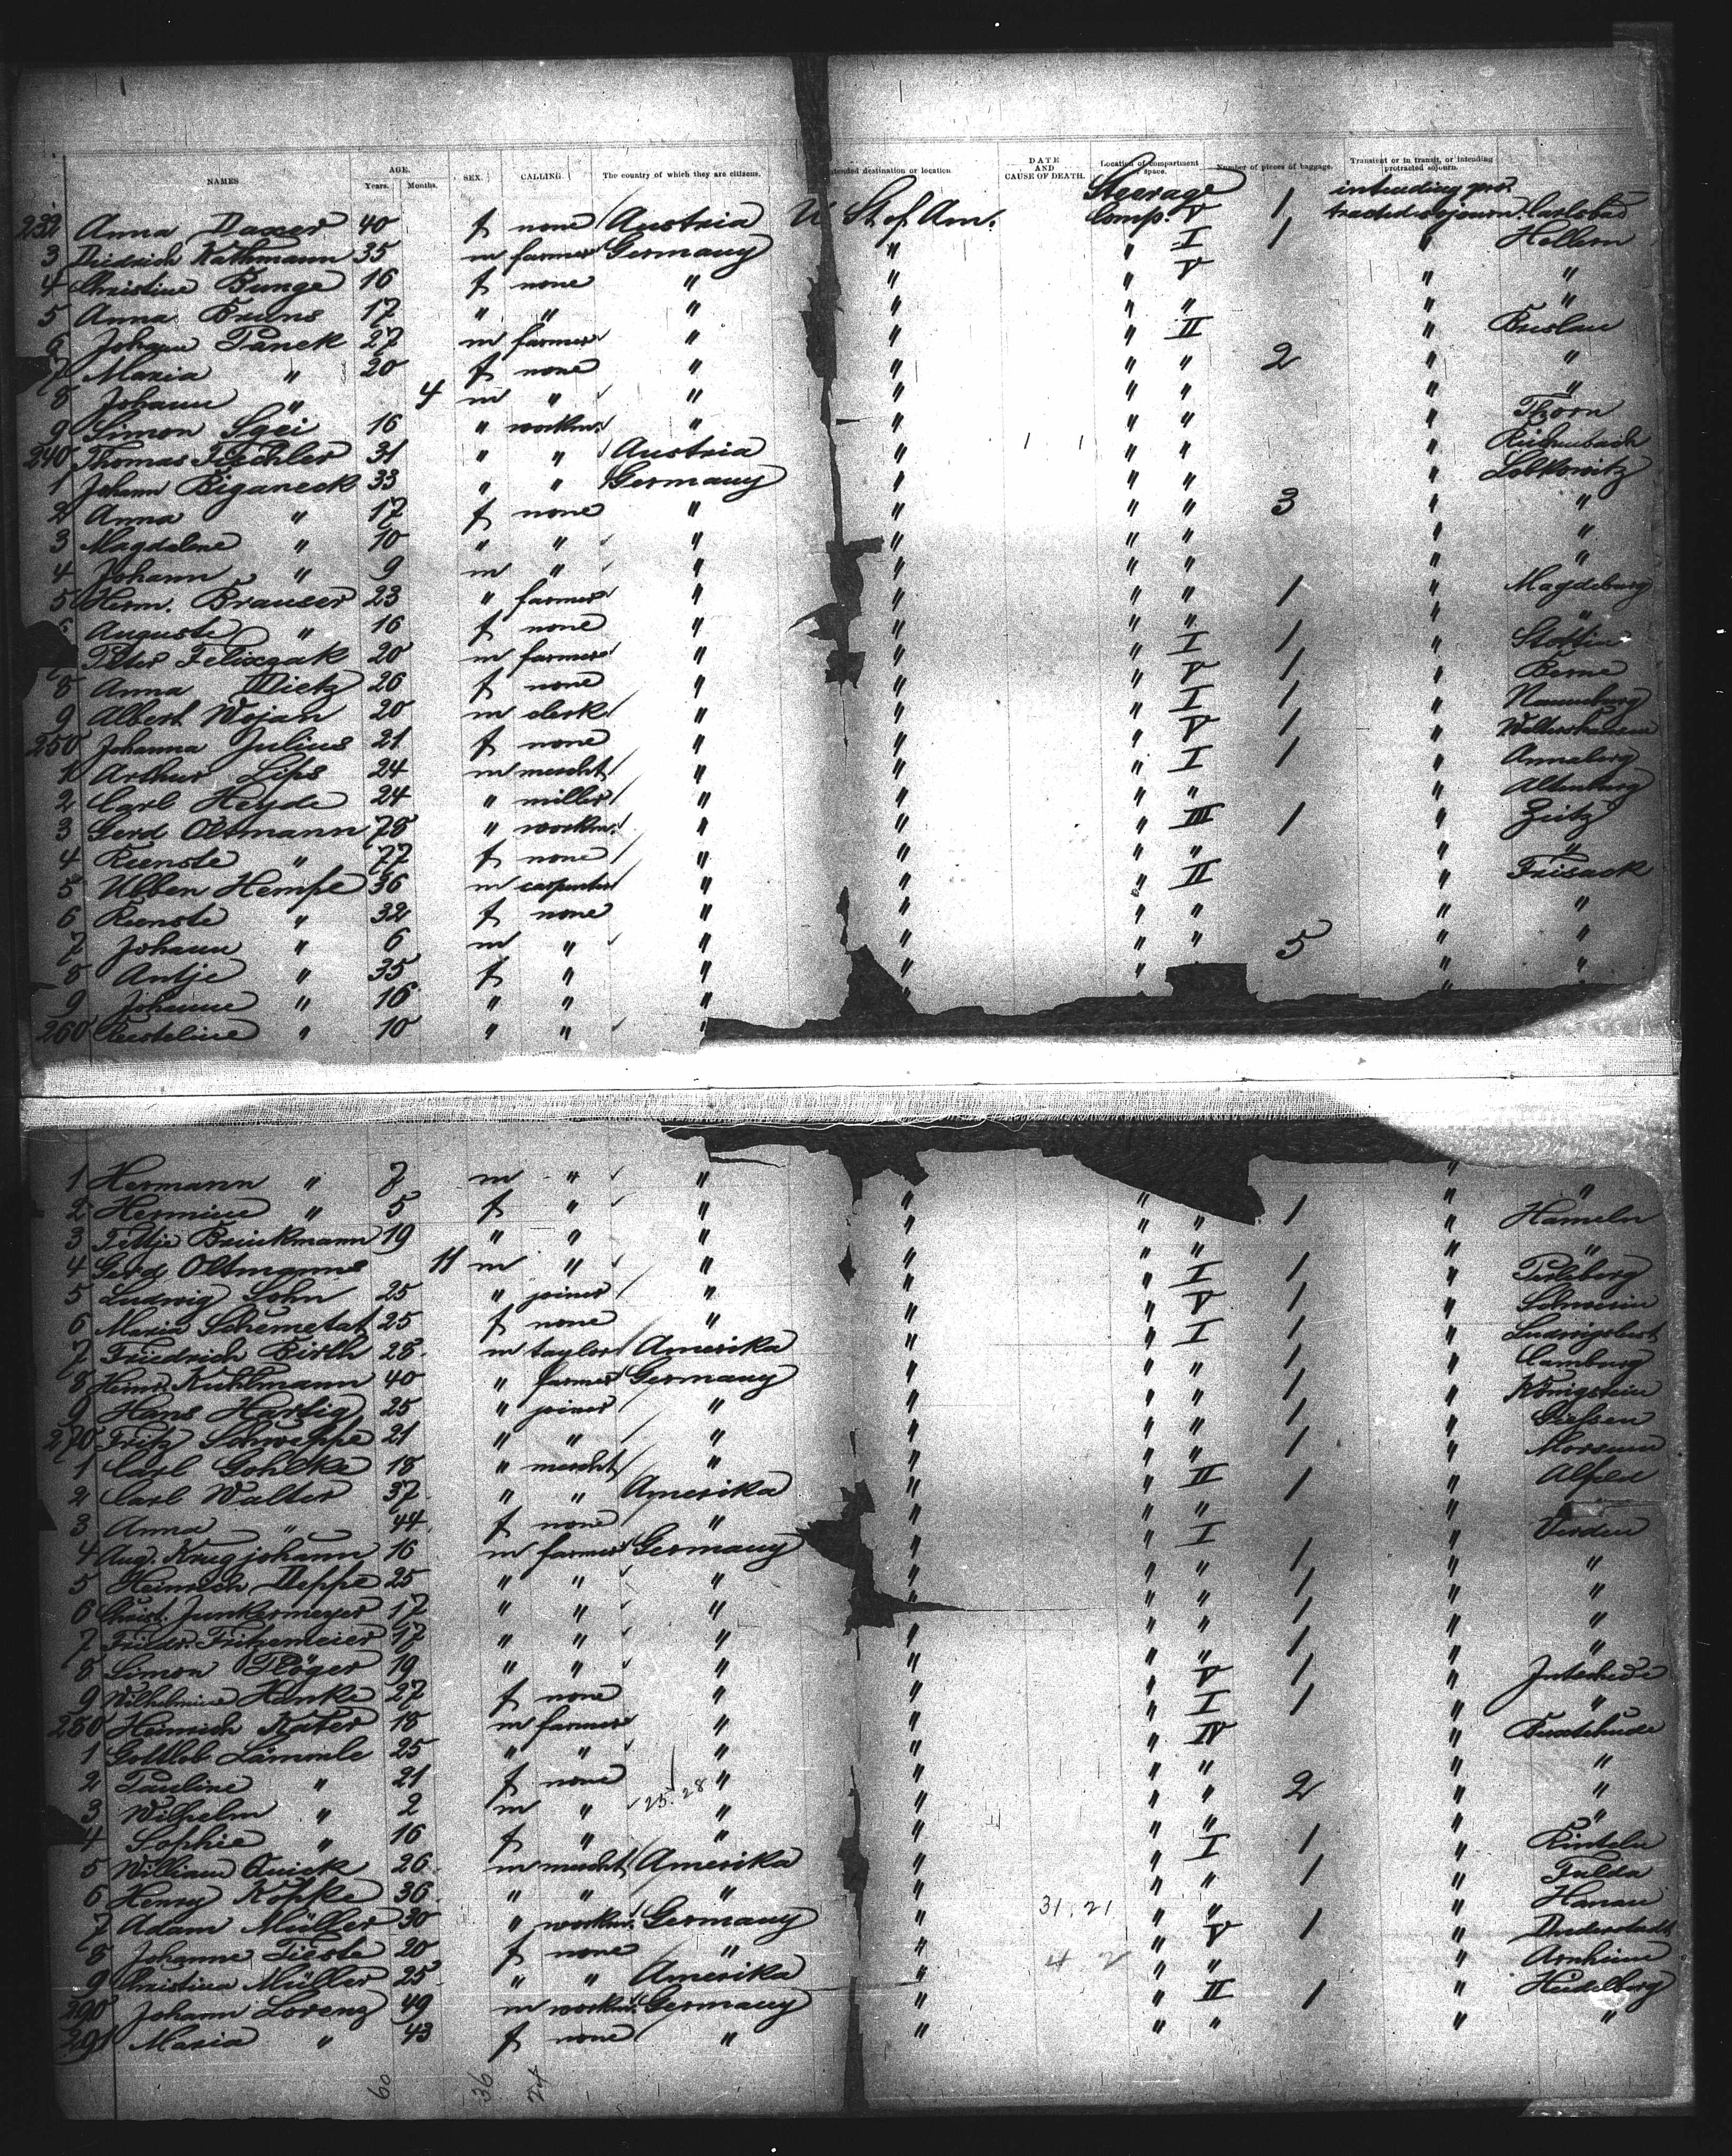 NAMES AGE. Years. Months. SEX. CALLING. The country of which they are citizens. Intended destination or location DATE AND CAUSE OF DEATH. Location of compartment or space. Number of pieces of baggage. Transient or in transit, or intending protracted sojourn.
Steerage intending pro-
232 Anna Daxer 40 f none Austria U St. of Am. Comp. V 1 tracted sojourn. Carlsbad
3 Diedrich Kathmann 35 m farmer Germany " " I 1 " Hellern
4 Christine Bunge 16 f none " " " V " "
5 Anna Bruns 17 " " " " " " " "
6 Johann Panek 27 m farmer " " " II " Breslau
7 Maria " 20 f none " " " " 2 " "
8 Johann " 4 m " " " " " " "
9 Simon 16 " workm. " " " " " Thorn
240 Thomas 31 " " Austria " " " " Reichenbach
1 Johann Biganeck 33 " " Germany " " " " Lobkowitz
2 Anna " 17 f none " " " " 3 " "
3 Magdalene " 10 " " " " " " " "
4 Johann " 9 m " " " " " " "
5 Herm. Brauser 23 " farmer " " " " 1 " Magdeburg
Auguste " 16 f none " " " " " "
Peter Felixzak 20 m farmer " " " I 1 " Stettin
8 Anna Dietz 26 f none " " " V 1 " Berne
9 Albert Wojan 20 m clerk " " " I 1 " Naumburg
250 Johanna Julius 21 f none " " " V 1 "
1 Arthur Lips 24 m mercht " " " I 1 " Annaberg
2 Carl Heyde 24 " miller " " " " " Altenburg
3 Gerd Oltmann 78 " workm. " " " III 1 " Zeitz
4 Renste " 77 f none " " " " " "
5 Ubben Hempe 36 m carpenter " " " II " Frisack
6 Renste " 32 f none " " " " " "
7 Johann " 6 m " " " " " 5 " "
8 Antje " 35 f " " " " " "
9 Johanne " 16 " " " " "
260 " 10 " " "
1 Hermann " 7 m " " " "
2 Hermine " 5 f " " " " 1 " "
3 Fettje Brinkmann 19 " " " " " " " Hameln
4 Gerd Oltmanns 11 m " " " " " " "
5 Ludwig Sohn 25 " joiner " " " I 1 " Perleberg
6 Maria Schemetat 25 f none " " " V 1 " Schwerin
7 Friedrich Firth 28 m taylor Amerika " " I 1 " Ludwigslust
8 Heinr. Kuhlmann 40 " farmer Germany " " " 1 " Camburg
9 Hans Hartig 25 " joiner " " " " 1 " Königstein
270 Fritz Schweppe 21 " " " " " " 1 " Giefsen
1 Carl Gohlke 18 " mercht " " " " 1 " Morsum
2 Carl Walter 37 " " Amerika " " II 1 " Alfeld
3 Anna " 44 f none " " " " "
4 Aug. Krugjohann 16 m farmer Germany " " I 1 " Verden
5 Heinrich Deppe 25 " " " " " " 1 " "
6 Christ. Junkermeyer 17 " " " " " " 1 " "
7 Friedr. Fritzemeier 17 " " " " " " 1 " "
8 Simon Plöger 19 " " " " " " 1 " "
9 Wilhelmine Hanke 27 f none " " " V 1 "
280 Heinrich Kater 18 m farmer " " " I 1 " "
1 Gottlob Lämmle 25 " " " " " IV " Buxtehude
2 Pauline " 21 f none " " " " " "
3 Wilhelm " 2 m " 25.28 " " " " 2 " "
4 Sophie " 16 f " " " " " " "
5 William Quick 26 m mercht Amerika " " I 1 " Rinteln
6 Henry Kopke 36 " " " " " " 1 " Fulda
7 Adam Müller 30 " workm. Germany " 31.21 " " " Hanau
8 Johanne Tieste 20 f none " " " V 1 " Duderstadt
9 Christina Müller 25 " " Amerika " 4 2 " " " Arnheim
290 Johann Lorenz 49 m workm. Germany " " II 1 " Heidelberg
291 Maria " 43 f none " " " " " "
60 36 24